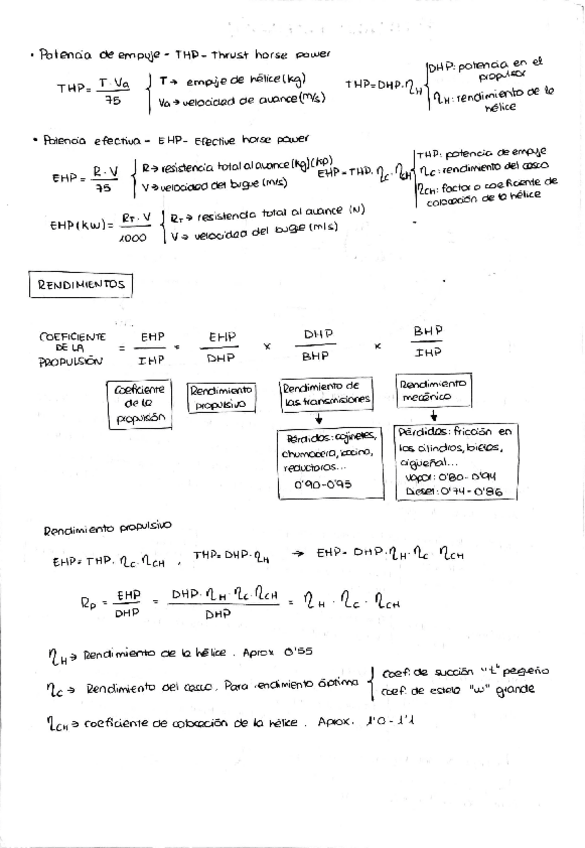 • Potencia de empuje - THP - Thrust horse power
THP = T · Va / 75 { T → empuje de hélice (kg)
Va → velocidad de avance (m/s)
THP = DHP · ηH { DHP: potencia en el propulsor
ηH: rendimiento de la hélice
• Potencia efectiva - EHP - Effective horse power
EHP = R · V / 75 { R → resistencia total al avance (kg) (kp)
V → velocidad del buque (m/s)
EHP = THP · ηC · ηCH { THP: potencia de empuje
ηC: rendimiento del casco
ηCH: factor o coeficiente de colocación de la hélice
EHP (kW) = RT · V / 1000 { RT → resistencia total al avance (N)
V → velocidad del buque (m/s)
RENDIMIENTOS
COEFICIENTE DE LA PROPULSIÓN = EHP / IHP = EHP / DHP × DHP / BHP × BHP / IHP
Coeficiente de la propulsión
Rendimiento propulsivo
Rendimiento de las transmisiones
Rendimiento mecánico
Pérdidas: cojinetes, chumacera, bocina, reductoras...
0'90-0'95
Pérdidas: fricción en los cilindros, bielas, cigüeñal...
Vapor: 0'80-0'94
Diesel: 0'74-0'86
Rendimiento propulsivo
EHP = THP · ηC · ηCH , THP = DHP · ηH → EHP = DHP · ηH · ηC · ηCH
Rp = EHP / DHP = DHP · ηH · ηC · ηCH / DHP = ηH · ηC · ηCH
ηH → Rendimiento de la hélice. Aprox 0'55
ηC → Rendimiento del casco. Para rendimiento óptimo { coef. de succión "t" pequeño
coef. de estela "w" grande
ηCH → coeficiente de colocación de la hélice. Aprox. 1'0-1'1